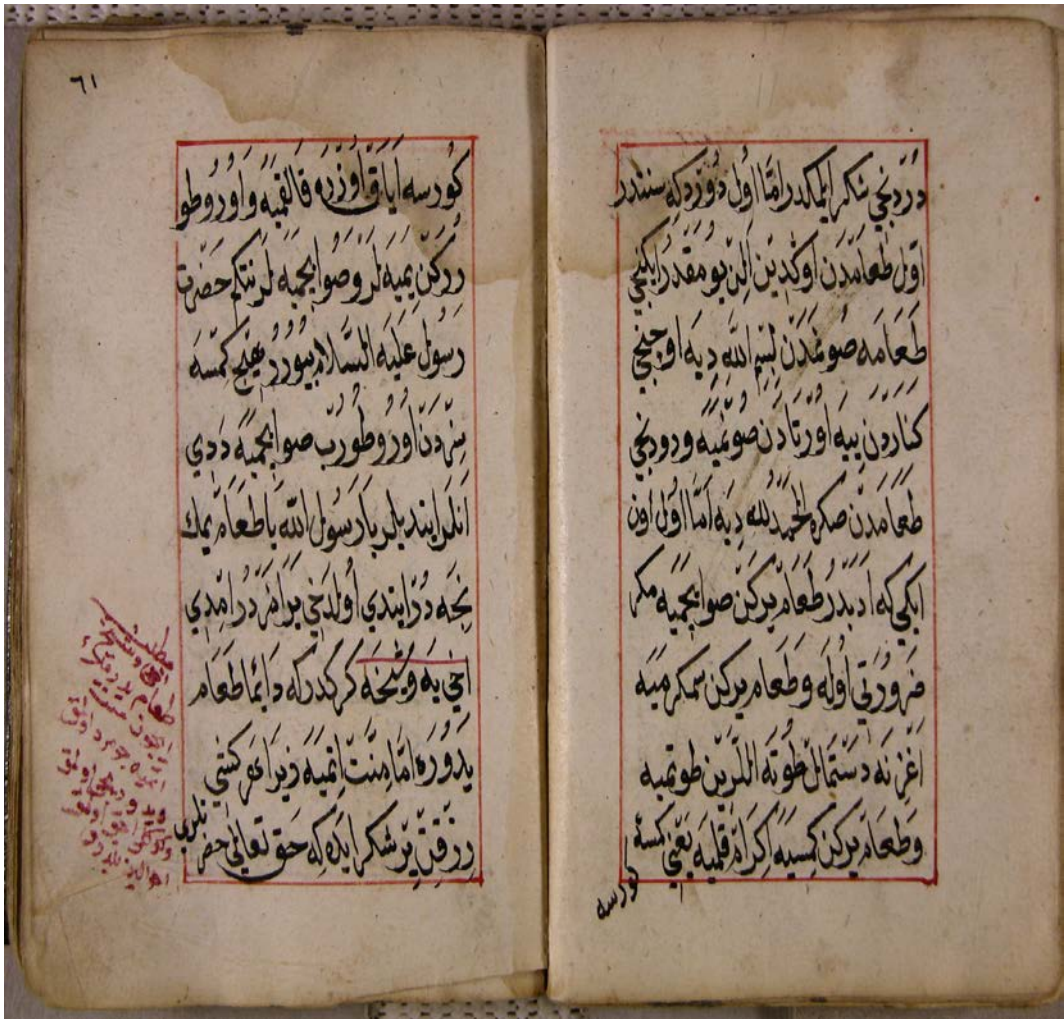 دردنجي شكر ايلمكدر امّا اول دورد كه سنتدر
اوّل طعامدن اوكدين الن يومقدر ايكنجي
طعامه صونمدن بسم الله ديه اوچنجي
كناردن ييه اورتادن صونميه و دردنجي
طعامدن صكره الحمد لله ديه امّا اول اون
ايكي كه ادبدر طعام يركن صو ايچميه مكر
ضرورتي اوله و طعام يركن سمكرميه
اغزنه دستمال طوته اللرين طوتميه
و طعام يركن كمسيه اكرام قلميه يعني كمسه
كورسه
٦١
كورسه اياق اوزره قالقميه و اوروطو
رركن يميه لر و صو ايچميه لر نتكم حضرت
رسول عليه السلام بيورر هيچ كمسه
سزدن اوروطورب صو ايچميه ددي
انلر ايتديلر يا رسول الله يا طعام يمك
نيجه در ايتدي اولدخي برامزدر امدي
اخي يه و شيخه كركدر كه دايما طعام
يدوره امّا منّت اتميه زيرا هر كشي
رزقن ير شكر ايده كه حق تعالي حضرتلري